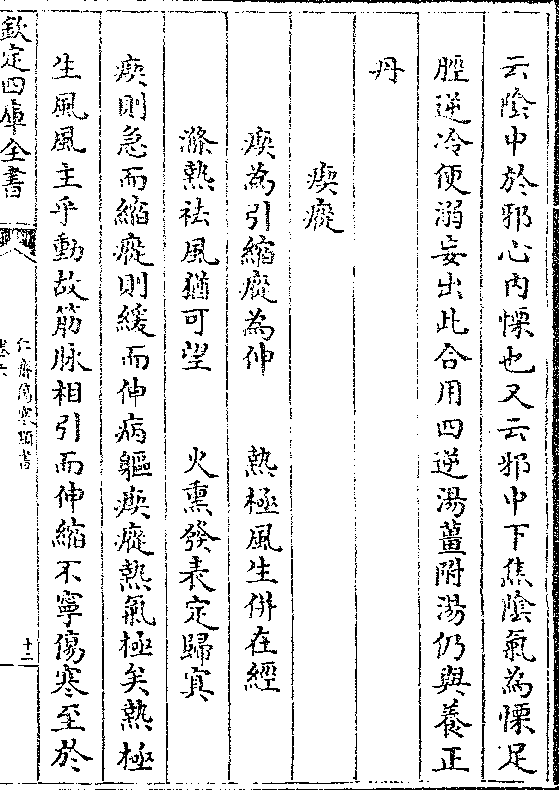 云陰中於邪心内慄也又云邪中下焦陰氣為慄足
脛逆冷便溺妄出此合用四逆湯薑附湯仍與養正
丹
瘈瘲
瘈為引縮瘲為伸　熱極風生併在經
滌熱祛風猶可望　火熏發表定歸㝠
瘈則急而縮瘲則緩而伸病軀瘈瘲熱氣極矣熱極
生風風主乎動故筋脉相引而伸縮不寧傷寒至於
欽定四庫全書
仁齋傷寒類書
卷六
十二